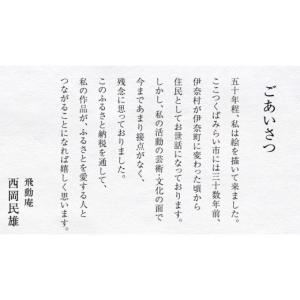 ごあいさつ
五十年程、私は絵を描いて来ました。
ここつくばみらい市には三十数年前、
伊奈村が伊奈町に変わった頃から
住民としてお世話になっております。
しかし、私の活動の芸術・文化の面で
今まであまり接点がなく、
残念に思っておりました。
このふるさと納税を通して、
私の作品が、ふるさとを愛する人と
つながることになれば嬉しく思います。
飛動庵
西岡民雄